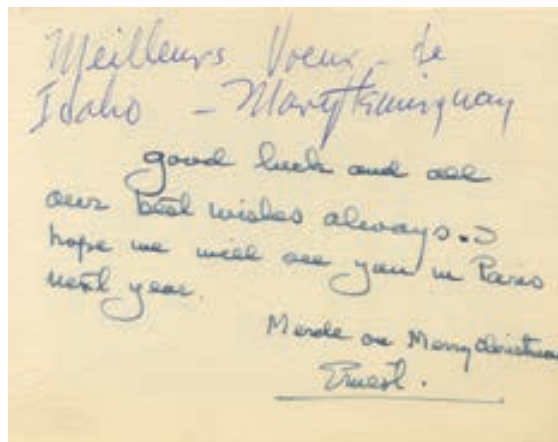 Meilleurs Voeux - de
Idaho - Mary Hemingway
good luck and all
our best wishes always. I
hope we will see you in Paris
next year.
Merde ou Merry Christmas
Ernest.